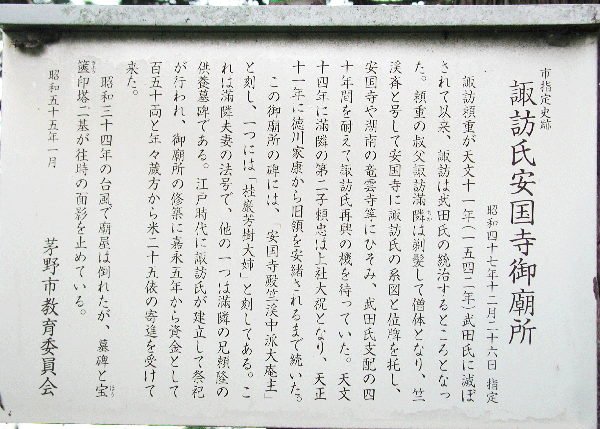 市指定史跡
諏訪氏安国寺御廟所
昭和四十七年十二月二十六日 指定
諏訪頼重が天文十一年(一五四二年)武田氏に滅ぼ
されて以来、諏訪は武田氏の統治するところとなっ
た。頼重の叔父諏訪満隣は剃髪して僧体となり、竺
渓斉と号して安国寺に諏訪氏の系図と位牌を托し、
安国寺や湖南の竜雲寺等にひそみ、武田氏支配の四
十年間を耐えて諏訪氏再興の機を待っていた。天文
十四年に満隣の第二子頼忠は上社大祝となり、天正
十一年に徳川家康から旧領を安緒されるまで続いた。
この御廟所の碑には、「安国寺殿竺渓中派大庵主」
と刻し、一つには「桂巌芳樹大姉」と刻してある。こ
れは満隣夫妻の法号で、他の一つは満隣の兄頼隆の
供養墓碑である。江戸時代に諏訪氏が建立して祭祀
が行われ、御廟所の修築に嘉永五年から資金として
百五十両と年々蔵方から米二十五俵の寄進を受けて
来た。
昭和三十四年の台風で廟屋は倒れたが、墓碑と宝
篋印塔二基が往時の面影を止めている。
昭和五十五年一月
茅野市教育委員会